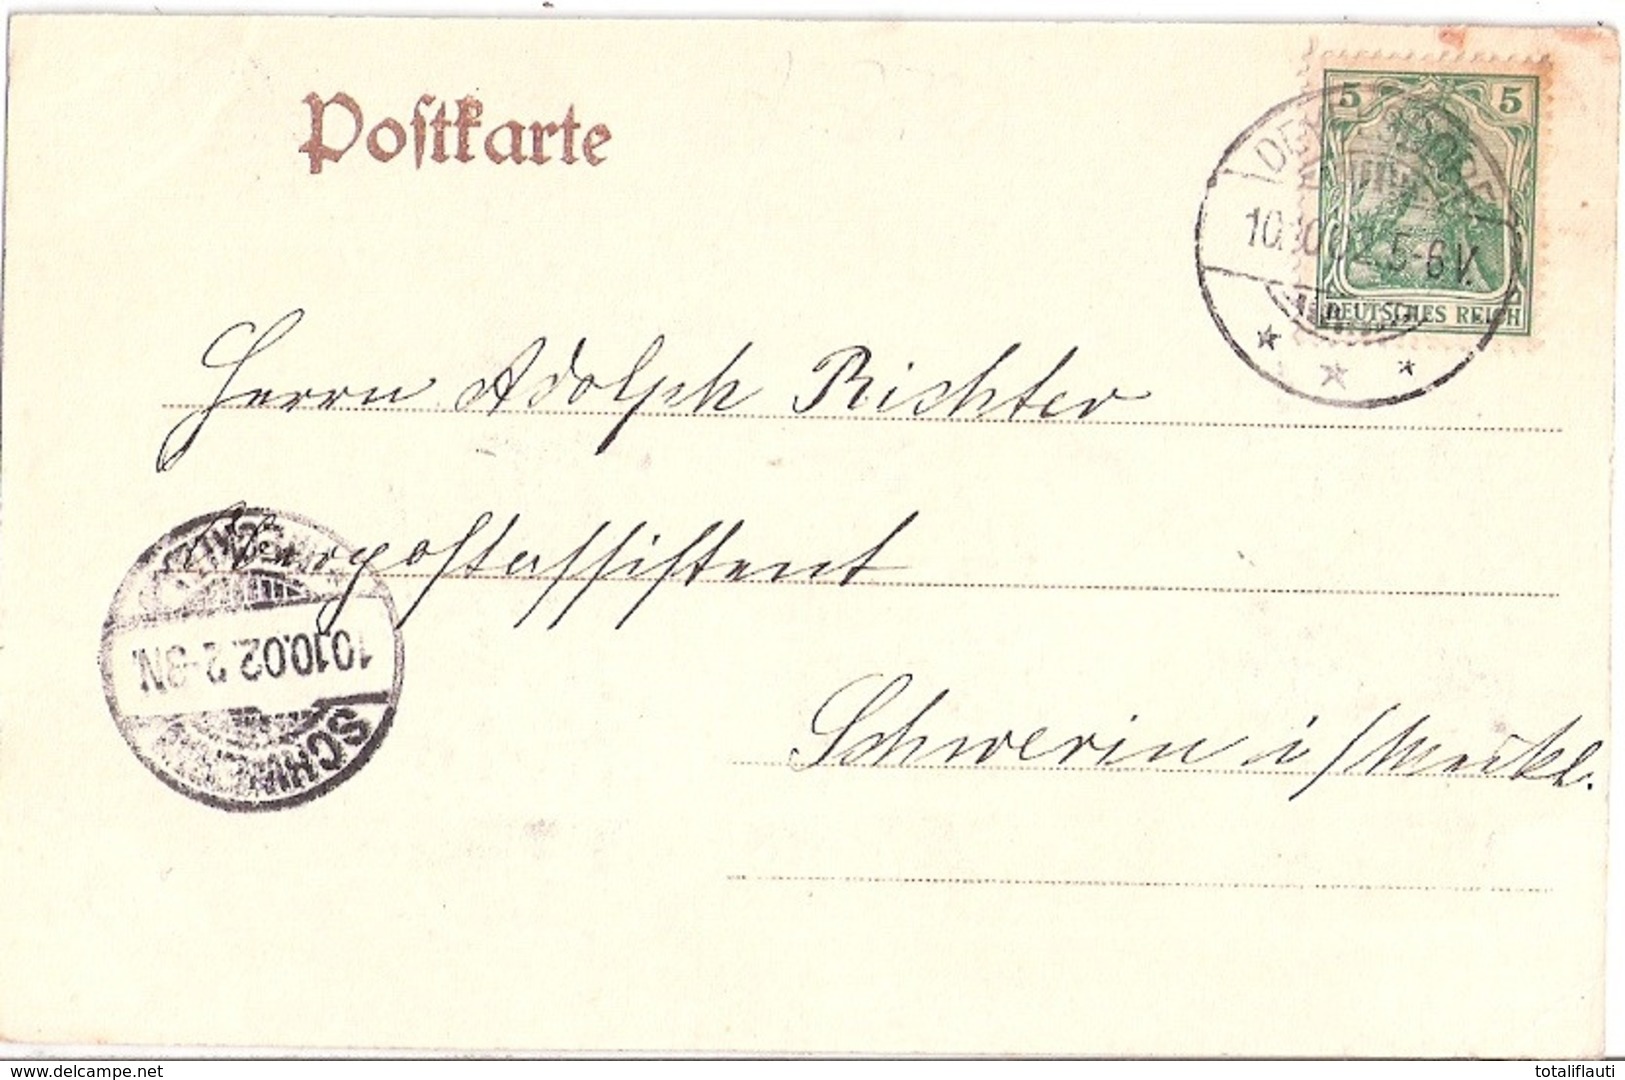 Postkarte
5 5
DEUTSCHES REICH
10.10.02. 5-6 V.
Herrn Adolph Richter
Oberpostassistent
Schwerin i/Meckl.
10.10.02. 2-3N.
SCHWERIN
delcampe.net
totaliflauti